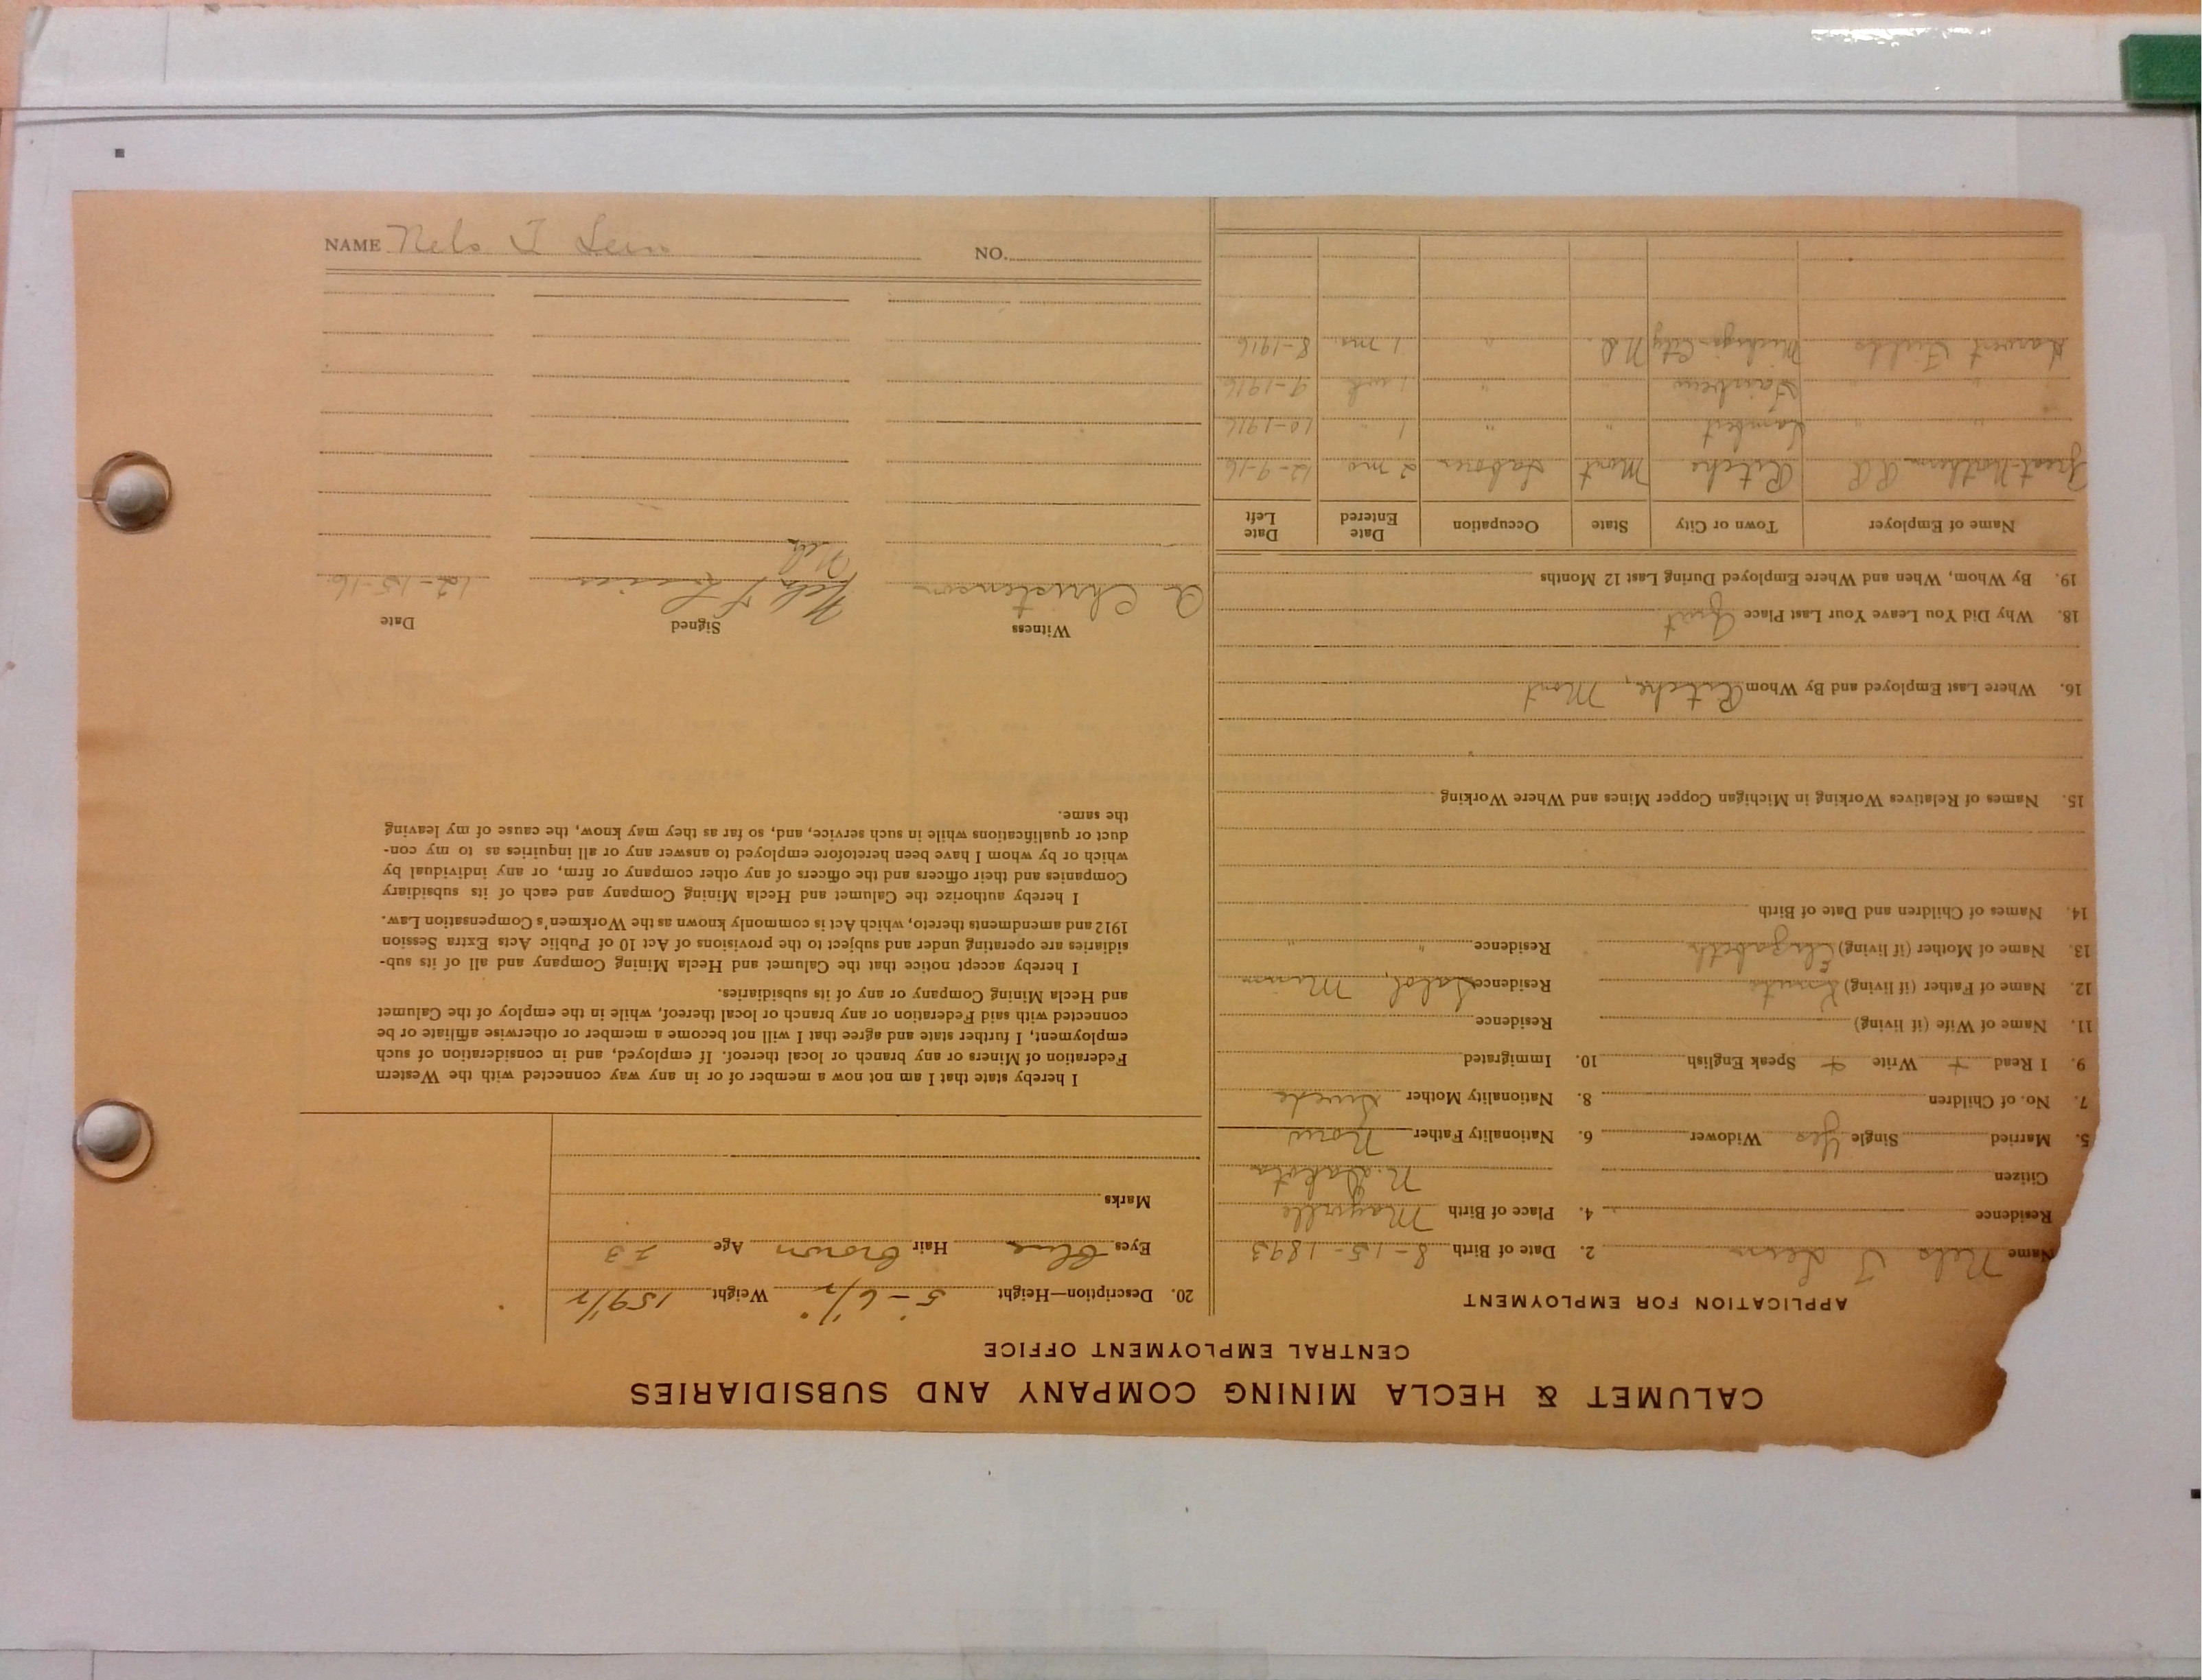 CALUMET & HECLA MINING COMPANY AND SUBSIDIARIES
CENTRAL EMPLOYMENT OFFICE
APPLICATION FOR EMPLOYMENT
Name Nels T 2. Date of Birth 8-15-1893
Residence 4. Place of Birth Mayville
Citizen N. Dakota
5. Married Single Yes Widower 6. Nationality Father Norw
7. No. of Children 8. Nationality Mother Swede
9. I Read + Write + Speak English 10. Immigrated
11. Name of Wife (if living) Residence
12. Name of Father (if living) Knute Residence Minn
13. Name of Mother (if living) Elizabeth Residence " "
14. Names of Children and Date of Birth
15. Names of Relatives Working in Michigan Copper Mines and Where Working
16. Where Last Employed and By Whom Mont
18. Why Did You Leave Your Last Place Quit
19. By Whom, When and Where Employed During Last 12 Months
Name of Employer Town or City State Occupation Date Entered Date Left
Great Northern RR Mont Laborer 2 mo 12-9-16
" " Lambert " " 1 " 10-1916
" " " " 1 wk 9-1916
Harvest Fields Michigan City N.D. " 1 mo. 8-1916
20. Description—Height 5'-6 1/2" Weight 159 1/2
Eyes Blue Hair Brown Age 23
Marks
I hereby state that I am not now a member of or in any way connected with the Western
Federation of Miners or any branch or local thereof. If employed, and in consideration of such
employment, I further state and agree that I will not become a member or otherwise affiliate or be
connected with said Federation or any branch or local thereof, while in the employ of the Calumet
and Hecla Mining Company or any of its subsidiaries.
I hereby accept notice that the Calumet and Hecla Mining Company and all of its sub-
sidiaries are operating under and subject to the provisions of Act 10 of Public Acts Extra Session
1912 and amendments thereto, which Act is commonly known as the Workmen's Compensation Law.
I hereby authorize the Calumet and Hecla Mining Company and each of its subsidiary
Companies and their officers and the officers of any other company or firm, or any individual by
which or by whom I have been heretofore employed to answer any or all inquiries as to my con-
duct or qualifications while in such service, and, so far as they may know, the cause of my leaving
the same.
Witness Signed Date
A Christenson Nels T 12-15-16
NAME Nels T NO.